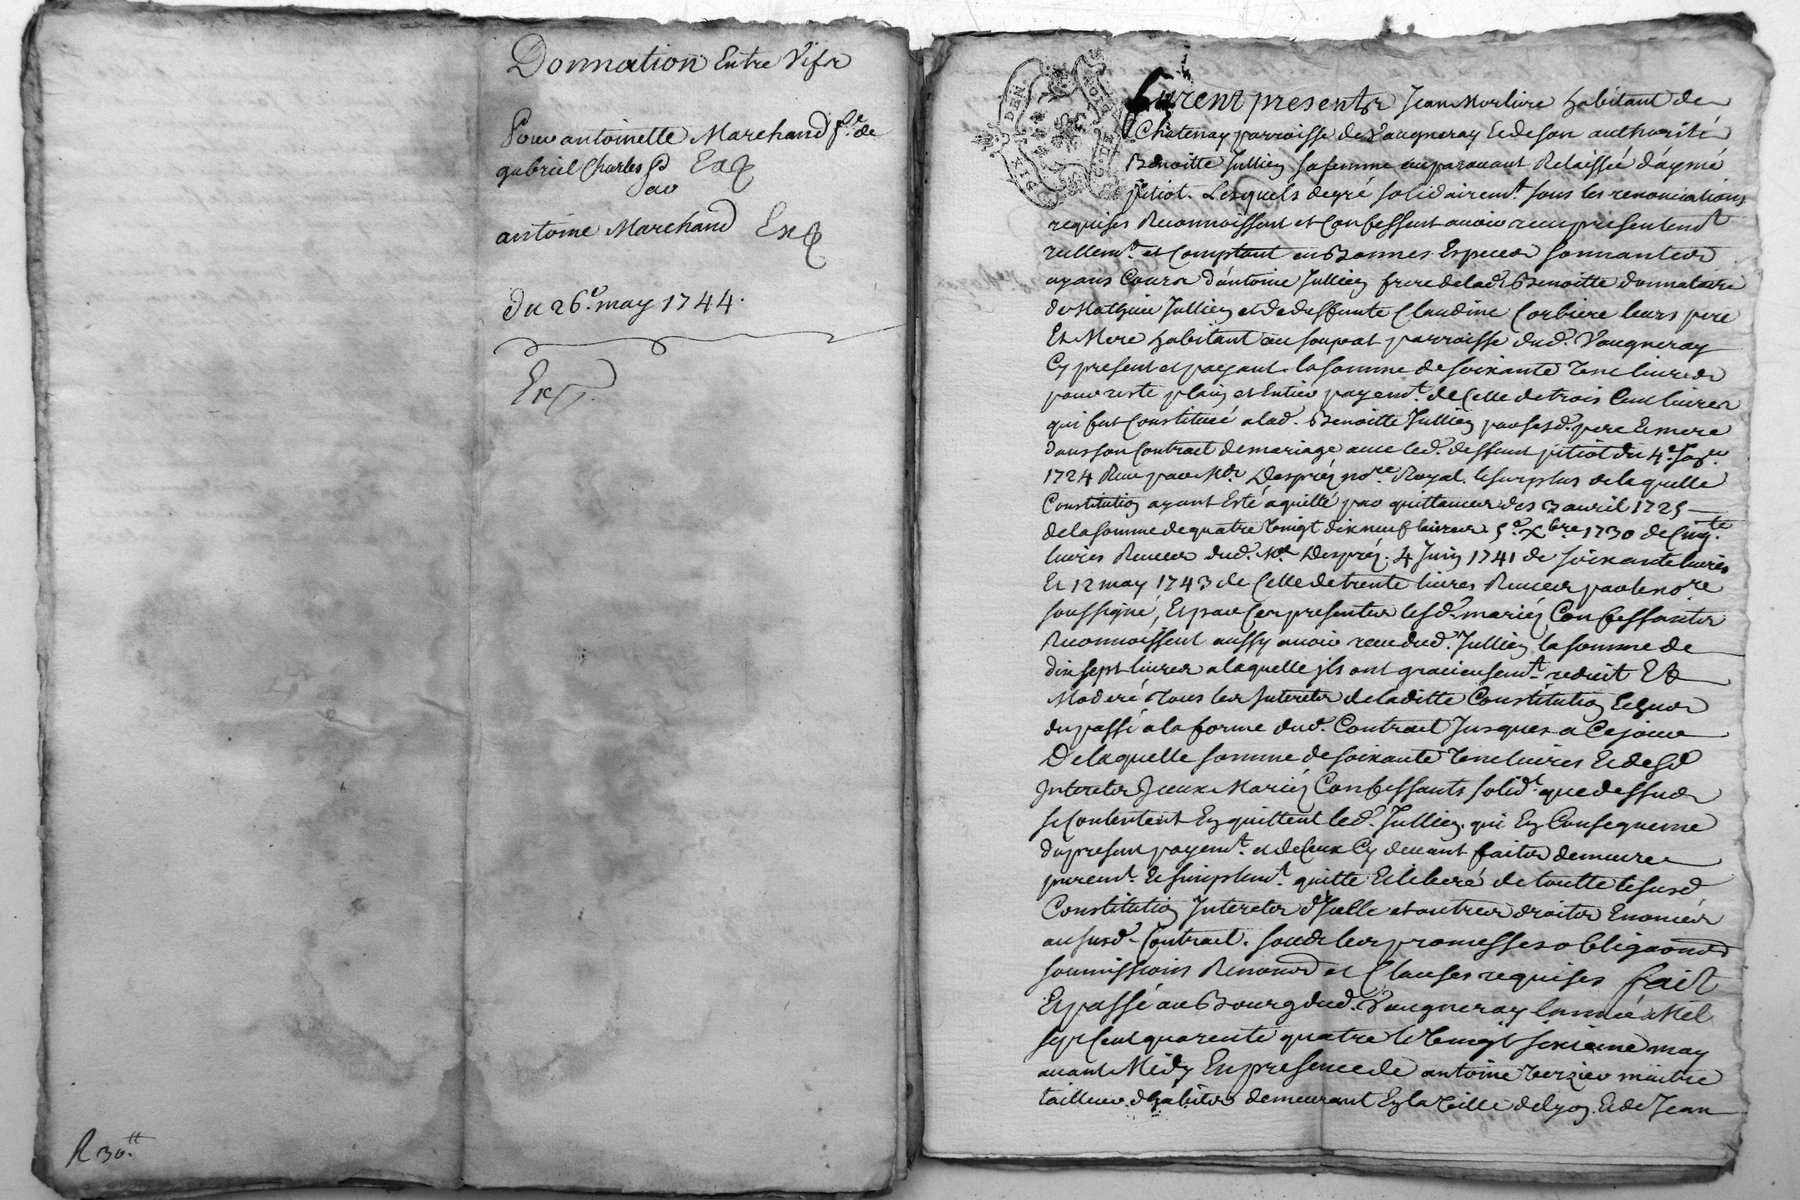 Donnation Entre Vifs
Pour antoinette Marchand f.e de
gabriel Charles Sd Exp
par
antoine Marchand Exp
du 26.e may 1744.
Exp.
R 30.tt
furent presents Jean Morliere habitant de
Chatenay parroisse de Vaugneray Et de son authorité
Benoitte Jullien sa femme auparavant Relaissée d'aymé
pitiot. Lesquels de gré solidairem.t sous les renonciations
requises Reconnoissent et Confessent avoir reçu presentem.t
reellem.t et Comptant en Bonnes Especes sonnantes
ayans Cours d'antoine Jullien frere de lad. Benoitte donnataire
de Mathieu Jullien et de deffunte Claudine Corbiere leurs pere
Et Mere habitant au parroisse dud. Vaugneray
Cy present et payant la somme de soixante unze livres
pour reste plain et Entier payem.t de Celle de trois Cent livres
qui fut Constituée a lad. Benoitte Jullien par sesd. pere Et mere
dans son Contract de mariage avec led. deffunt pitiot du 4.e
1724 Reçu par Me. Despréz no.re Royal. le surplus de laquelle
Constitution ayant Esté aquitté par quittances des 3 avril 1725
de la somme de quatre vingt dix neuf livres 5.e Xbre 1730 de Cinq.te
livres Reçues dud. Me. Despréz. 4 Juin 1741 de soixante livres
Et 12 may 1743 de Celle de trente livres Reçues par le no.re
soussigné, Et par Ces presentes lesd. mariéz Confessants
Reconnoissent aussy avoir reçu dud. Jullien la somme de
dix sept livres a laquelle jls ont gracieusem.t reduit Et
Moderé tous les Interets de laditte Constitution Echus
du passé a la forme dud. Contract Jusques a Ce jour
De laquelle somme de soixante unze livres Et desd.
Interets Jceux Mariéz Confessants solid.t que dessus
se Contentent En quittent led. Jullien. qui En Consequence
du present payem.t et de Ceux Cy devant faits demeure
purem.t Et simplem.t quitte Et liberé de toutte lesusd.
Constitution Interets d'Jcelle et autres droits Enoncés
au susd. Contract. sous les promesses obligaons
soumissions Renons et Clauses requises fait
Et passé au Bourg dud. Vaugneray l'année Mil
sept Cent quarente quatre le vingt sixieme may
avant Midy En presence de antoine Verzier maitre
tailleur d'habits demeurant En la ville de Lyon. Et de Jean